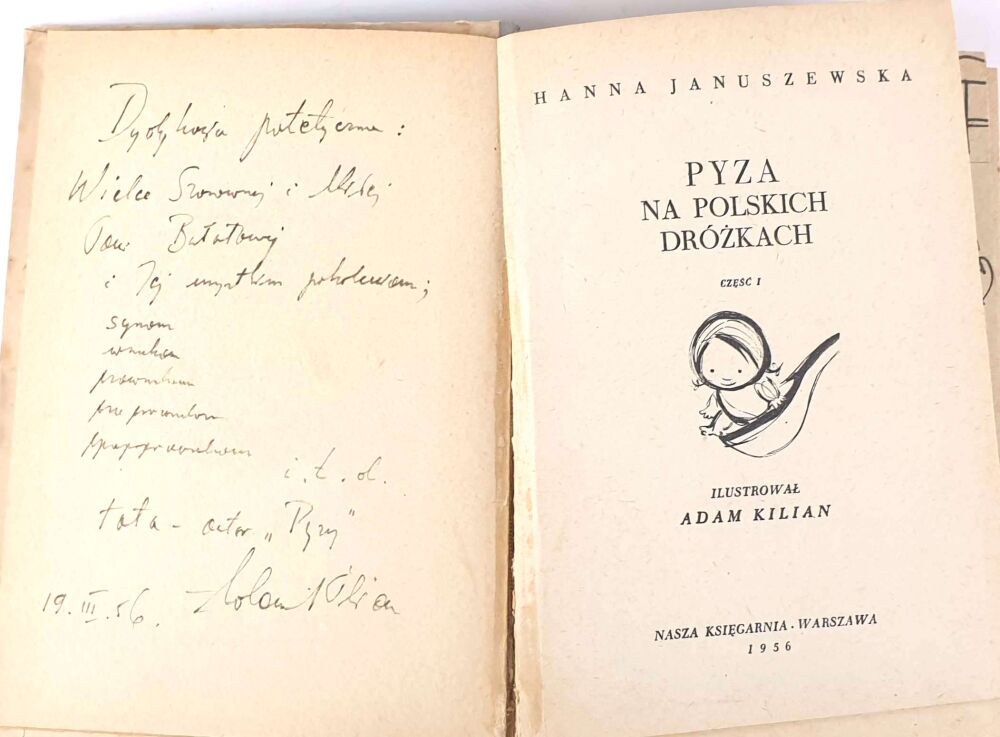 Dedykacja patetyczna:
Wielce Szanownej i Miłej
Pani
i Jej wszystkim pokoleniom;
synom
wnukom
prawnukom
pra prawnukom
i.t.d.
tata - autor „Pyzy”
19.III.56. Adam Kilian
HANNA JANUSZEWSKA
PYZA
NA POLSKICH
DRÓŻKACH
CZĘŚĆ I
ILUSTROWAŁ
ADAM KILIAN
NASZA KSIĘGARNIA · WARSZAWA
1956